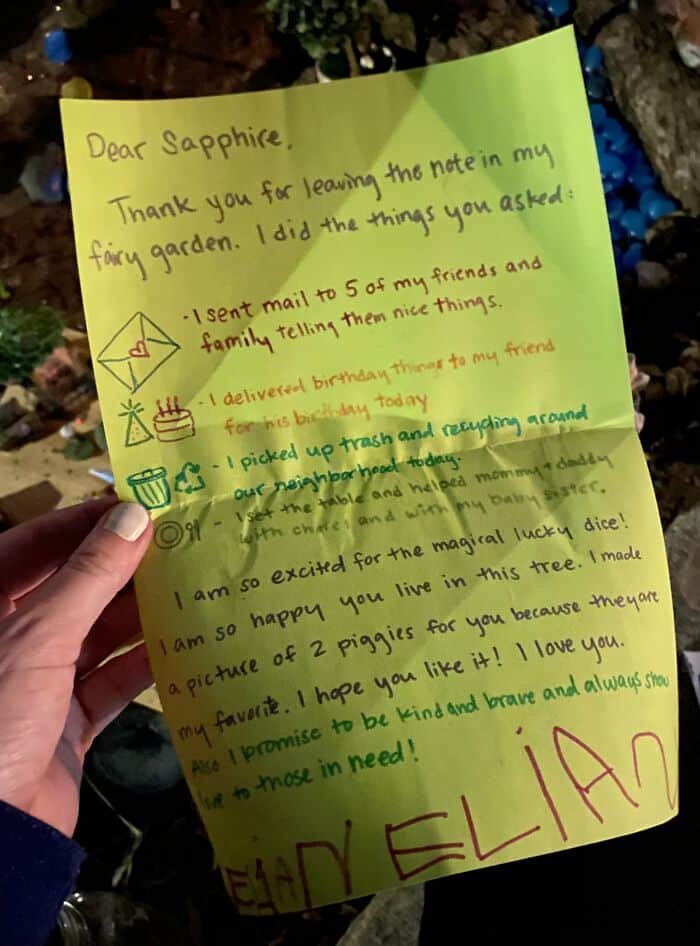 Dear Sapphire,
Thank you for leaving the note in my
fairy garden. I did the things you asked:
- I sent mail to 5 of my friends and
family telling them nice things.
- I delivered birthday things to my friend
for his birthday today
- I picked up trash and recycling around
our neighborhood today.
- I set the table and helped mommy + daddy
with chores and with my baby sister.
I am so excited for the magical lucky dice!
I am so happy you live in this tree. I made
a picture of 2 piggies for you because they are
my favorite. I hope you like it! I love you.
Also I promise to be kind and brave and always show
love to those in need!
ELIAN ELIAN